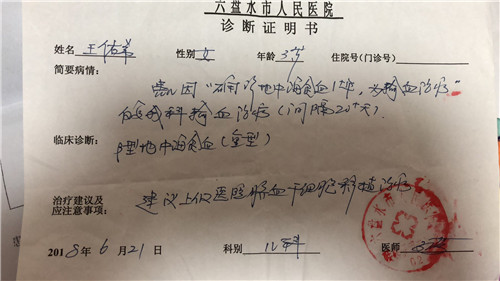 六盘水市人民医院
诊断证明书
姓名 王佑 性别 女 年龄 3岁 住院号(门诊号)
简要病情:
患儿因“确诊地中海贫血1年,为输血治疗”
在我科输血治疗(间隔20+天).
临床诊断: β型地中海贫血(重型)
治疗建议及
应注意事项: 建议上级医院脐血干细胞移植治疗
2018年6月21日 科别 儿科 医师